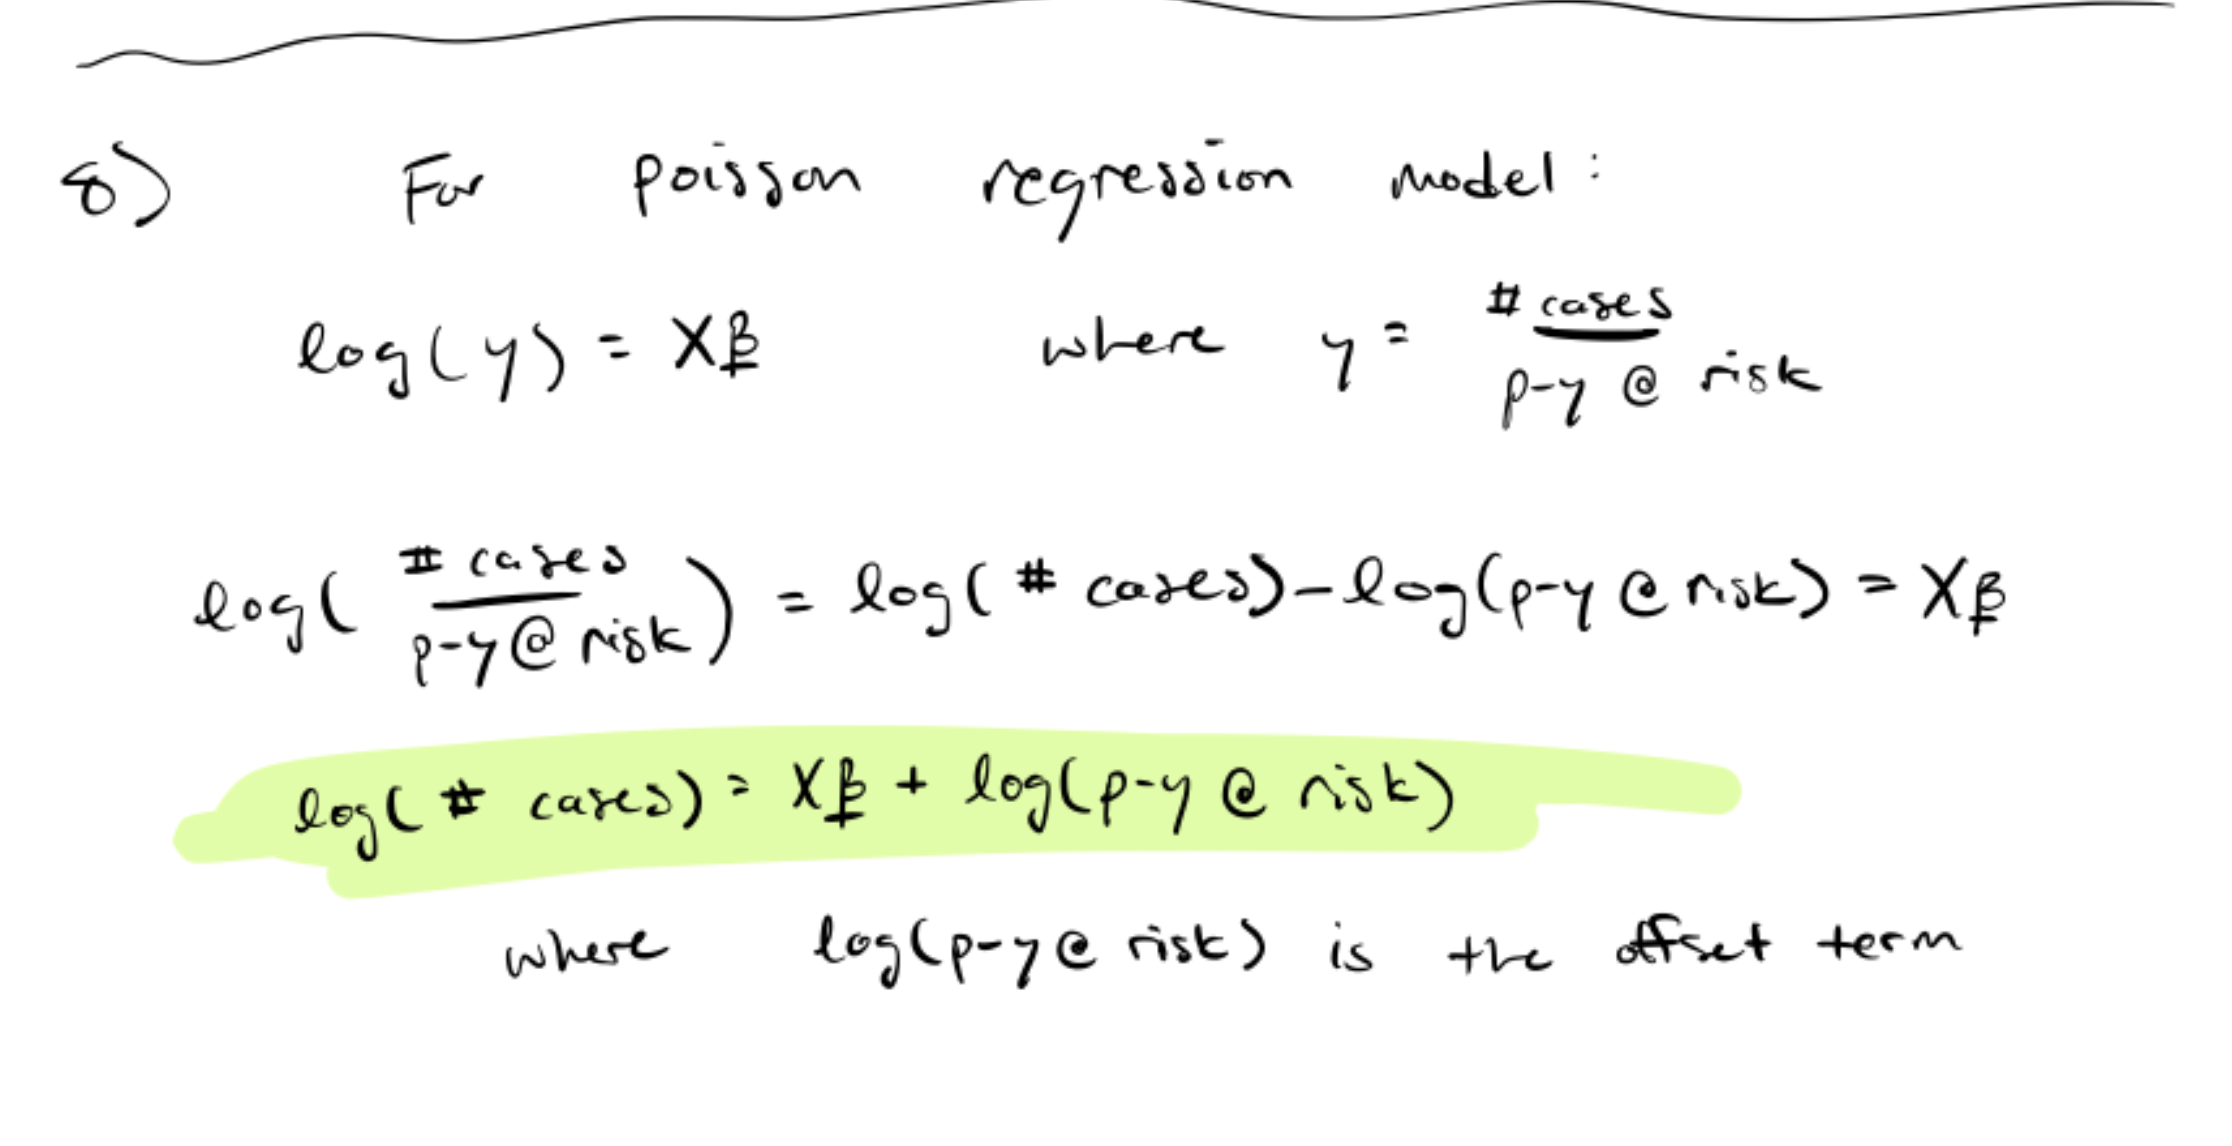 8) For poisson regression model:
log(y) = Xβ where y = # cases / p-y @ risk
log( # cases / p-y @ risk ) = log( # cases) - log(p-y @ risk) = Xβ
log( # cases) = Xβ + log(p-y @ risk)
where log(p-y @ risk) is the offset term